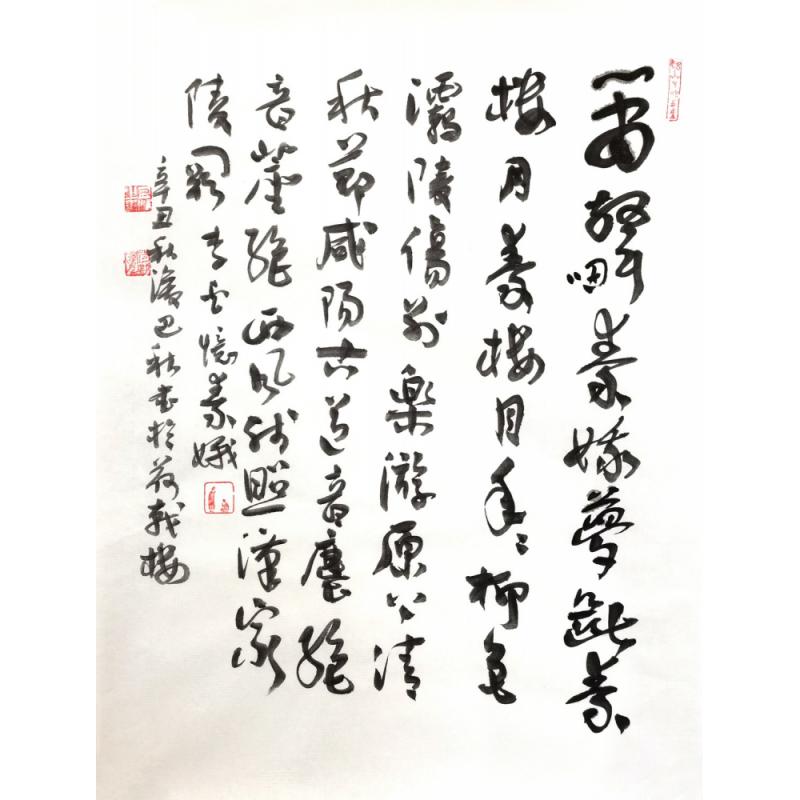 簫聲咽秦娥夢斷秦
樓月秦樓月年々柳色
灞陵傷別樂游原上清
秋節咸陽古道音塵絶
音塵絶西風殘照漢家
陵闕李白憶秦娥
辛丑秋巴秋書於荷戟樓